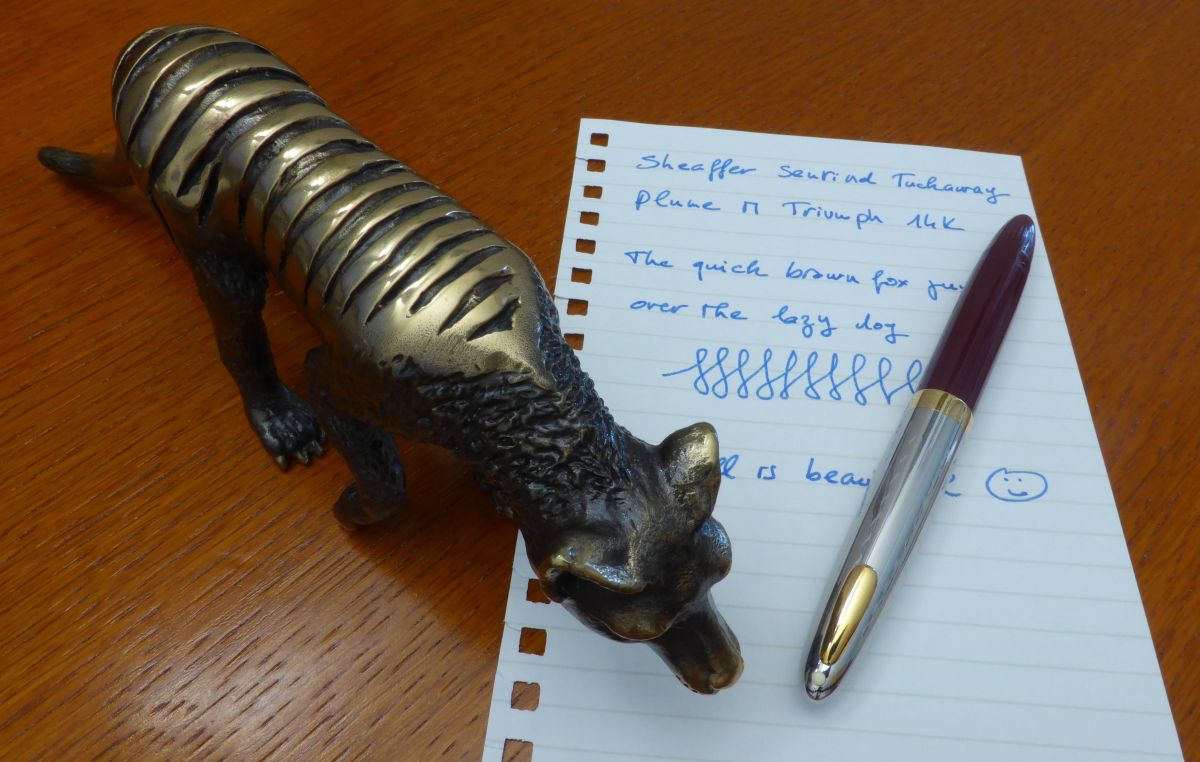 Sheaffer Sentinel Tuckaway
Plume M Triumph 14K
The quick brown fox ju
over the lazy dog
ll is beau